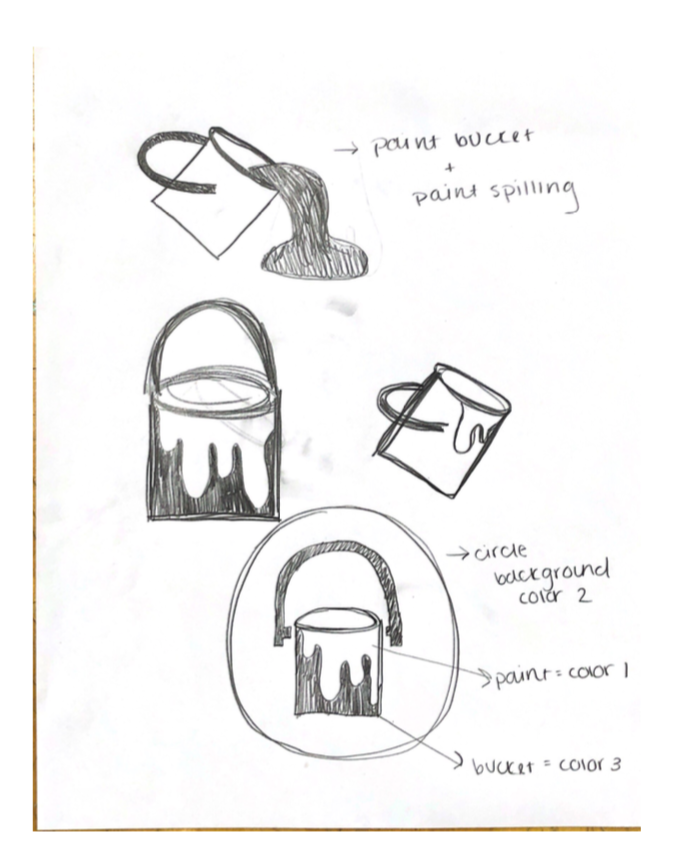 → paint bucket
+
paint spilling
→ circle
background
color 2
paint = color 1
bucket = color 3